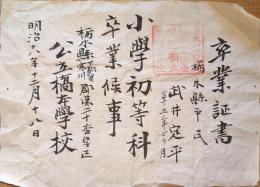 卒業証書
栃木縣平民
武井定平
小學初等科
卒業候事
栃木縣
第二十番学区
公立橋本学校
明治十八年十二月十八日